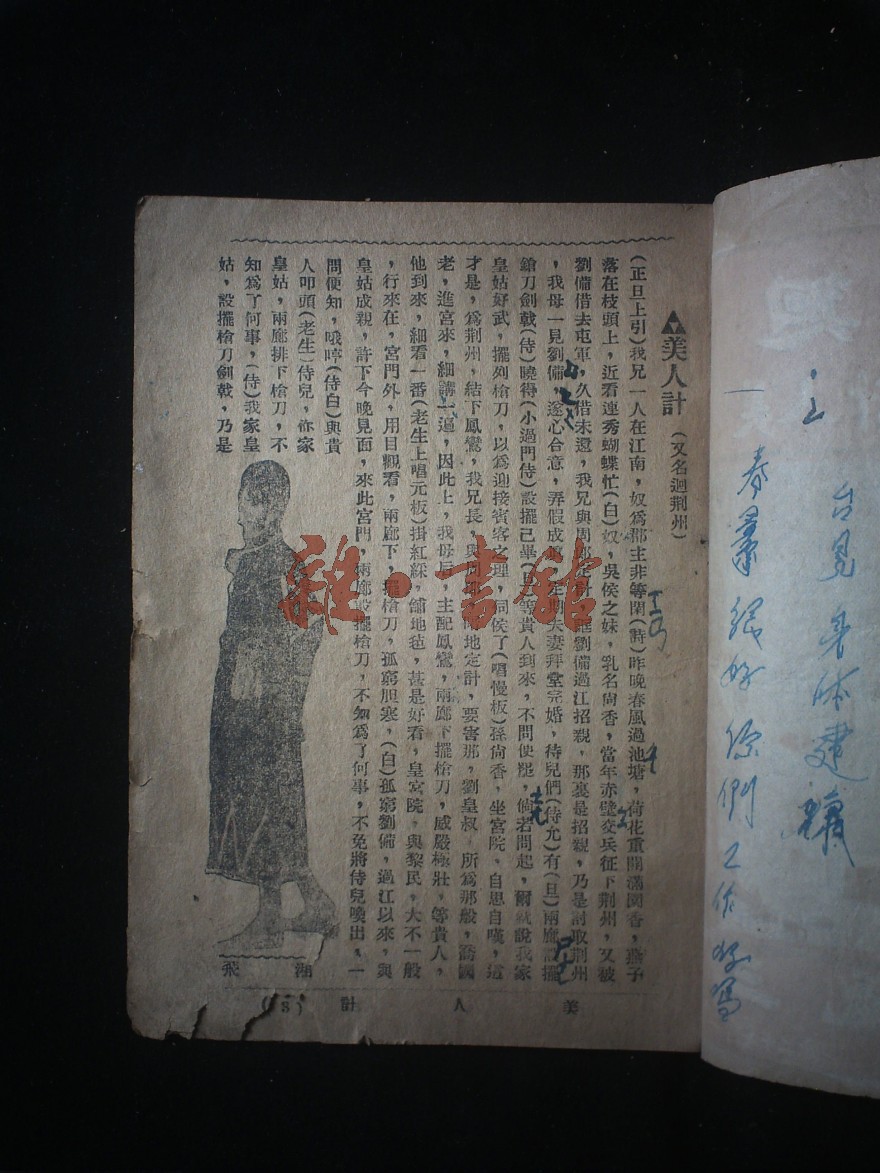 美人計（又名迴荊州）
（正旦上引）我兄一人在江南，奴爲郡主非等閑（詩）昨晚春風過池塘，荷花重開滿園香，燕子
落在枝頭上，近看連秀蝴蝶忙（白）奴，吳侯之妹，乳名尙香，當年赤壁交兵征下荊州，又被
劉備借去屯軍，久借未還，我兄與周郎定計，誆劉備過江招親，那裏是招親，乃是討取荊州
，我母一見劉備，遂心合意，弄假成眞，定期夫妻拜堂完婚，待兒們（侍允）有（旦）兩廊設擺
鎗刀劍戟（侍）曉得（小過門侍）設擺已畢（旦）等貴人到來，不問便罷，倘若問起，爾就說我家
皇姑好武，擺列槍刀，以爲迎接賓客之理，伺侯了（唱慢板）孫尙香，坐宮院，自思自嘆，這
才是，爲荊州，結下鳳鸞，我兄長，與周郎，地定計，要害那，劉皇叔，所爲那般，喬國
老，進宮來，細講一遍，因此上，我母后，主配鳳鸞，兩廊下擺槍刀，威嚴極壯，等貴人，
他到來，細看一番（老生上唱元板）掛紅綵，鋪地毡，甚是好看，皇宮院，與黎民，大不一般
，行來在，宮門外，用目觀看，兩廊下，擺槍刀，孤窮胆寒，（白）孤窮劉備，過江以來，與
皇姑成親，許下今晚見面，來此宮門，兩廊設擺槍刀，不知爲了何事，不免將侍兒喚出，一
問便知，哦哼（侍白）與貴
人叩頭（老生）侍兒，你家
皇姑，兩廊排下槍刀，不
知爲了何事，（侍）我家皇
姑，設擺槍刀劍戟，乃是
湖 飛
美 人 計 （8）
雜·書館
台見身体建
春 很好 你們工作好嗎